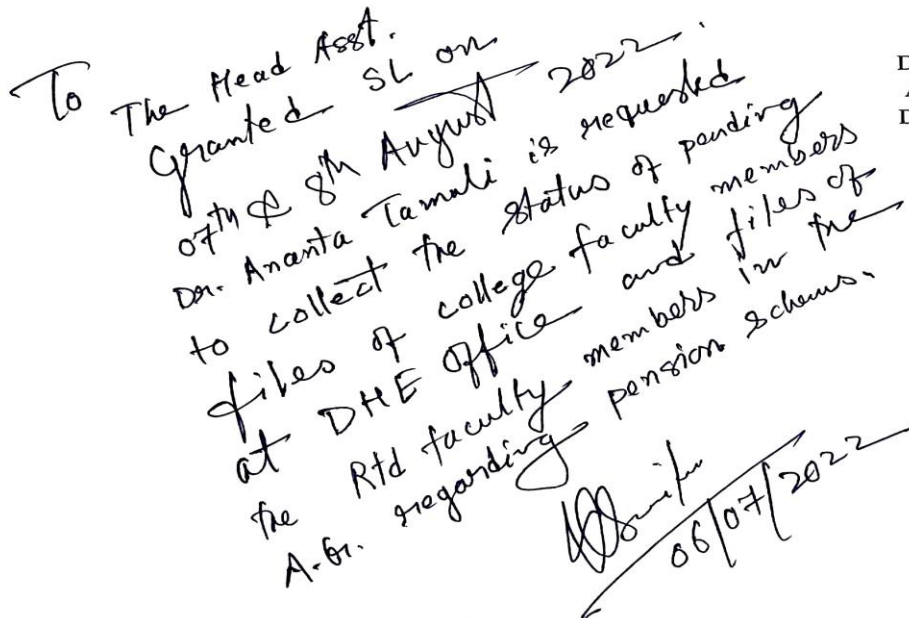 To
The Head Asst.
Granted SL on
07th & 8th August 2022.
Dr. Ananta Tamuli is requested
to collect the status of pending
files of college faculty members
at DHE Office and files of
the Rtd faculty members in the
A.G. regarding pension schems.
06/07/2022
D
D